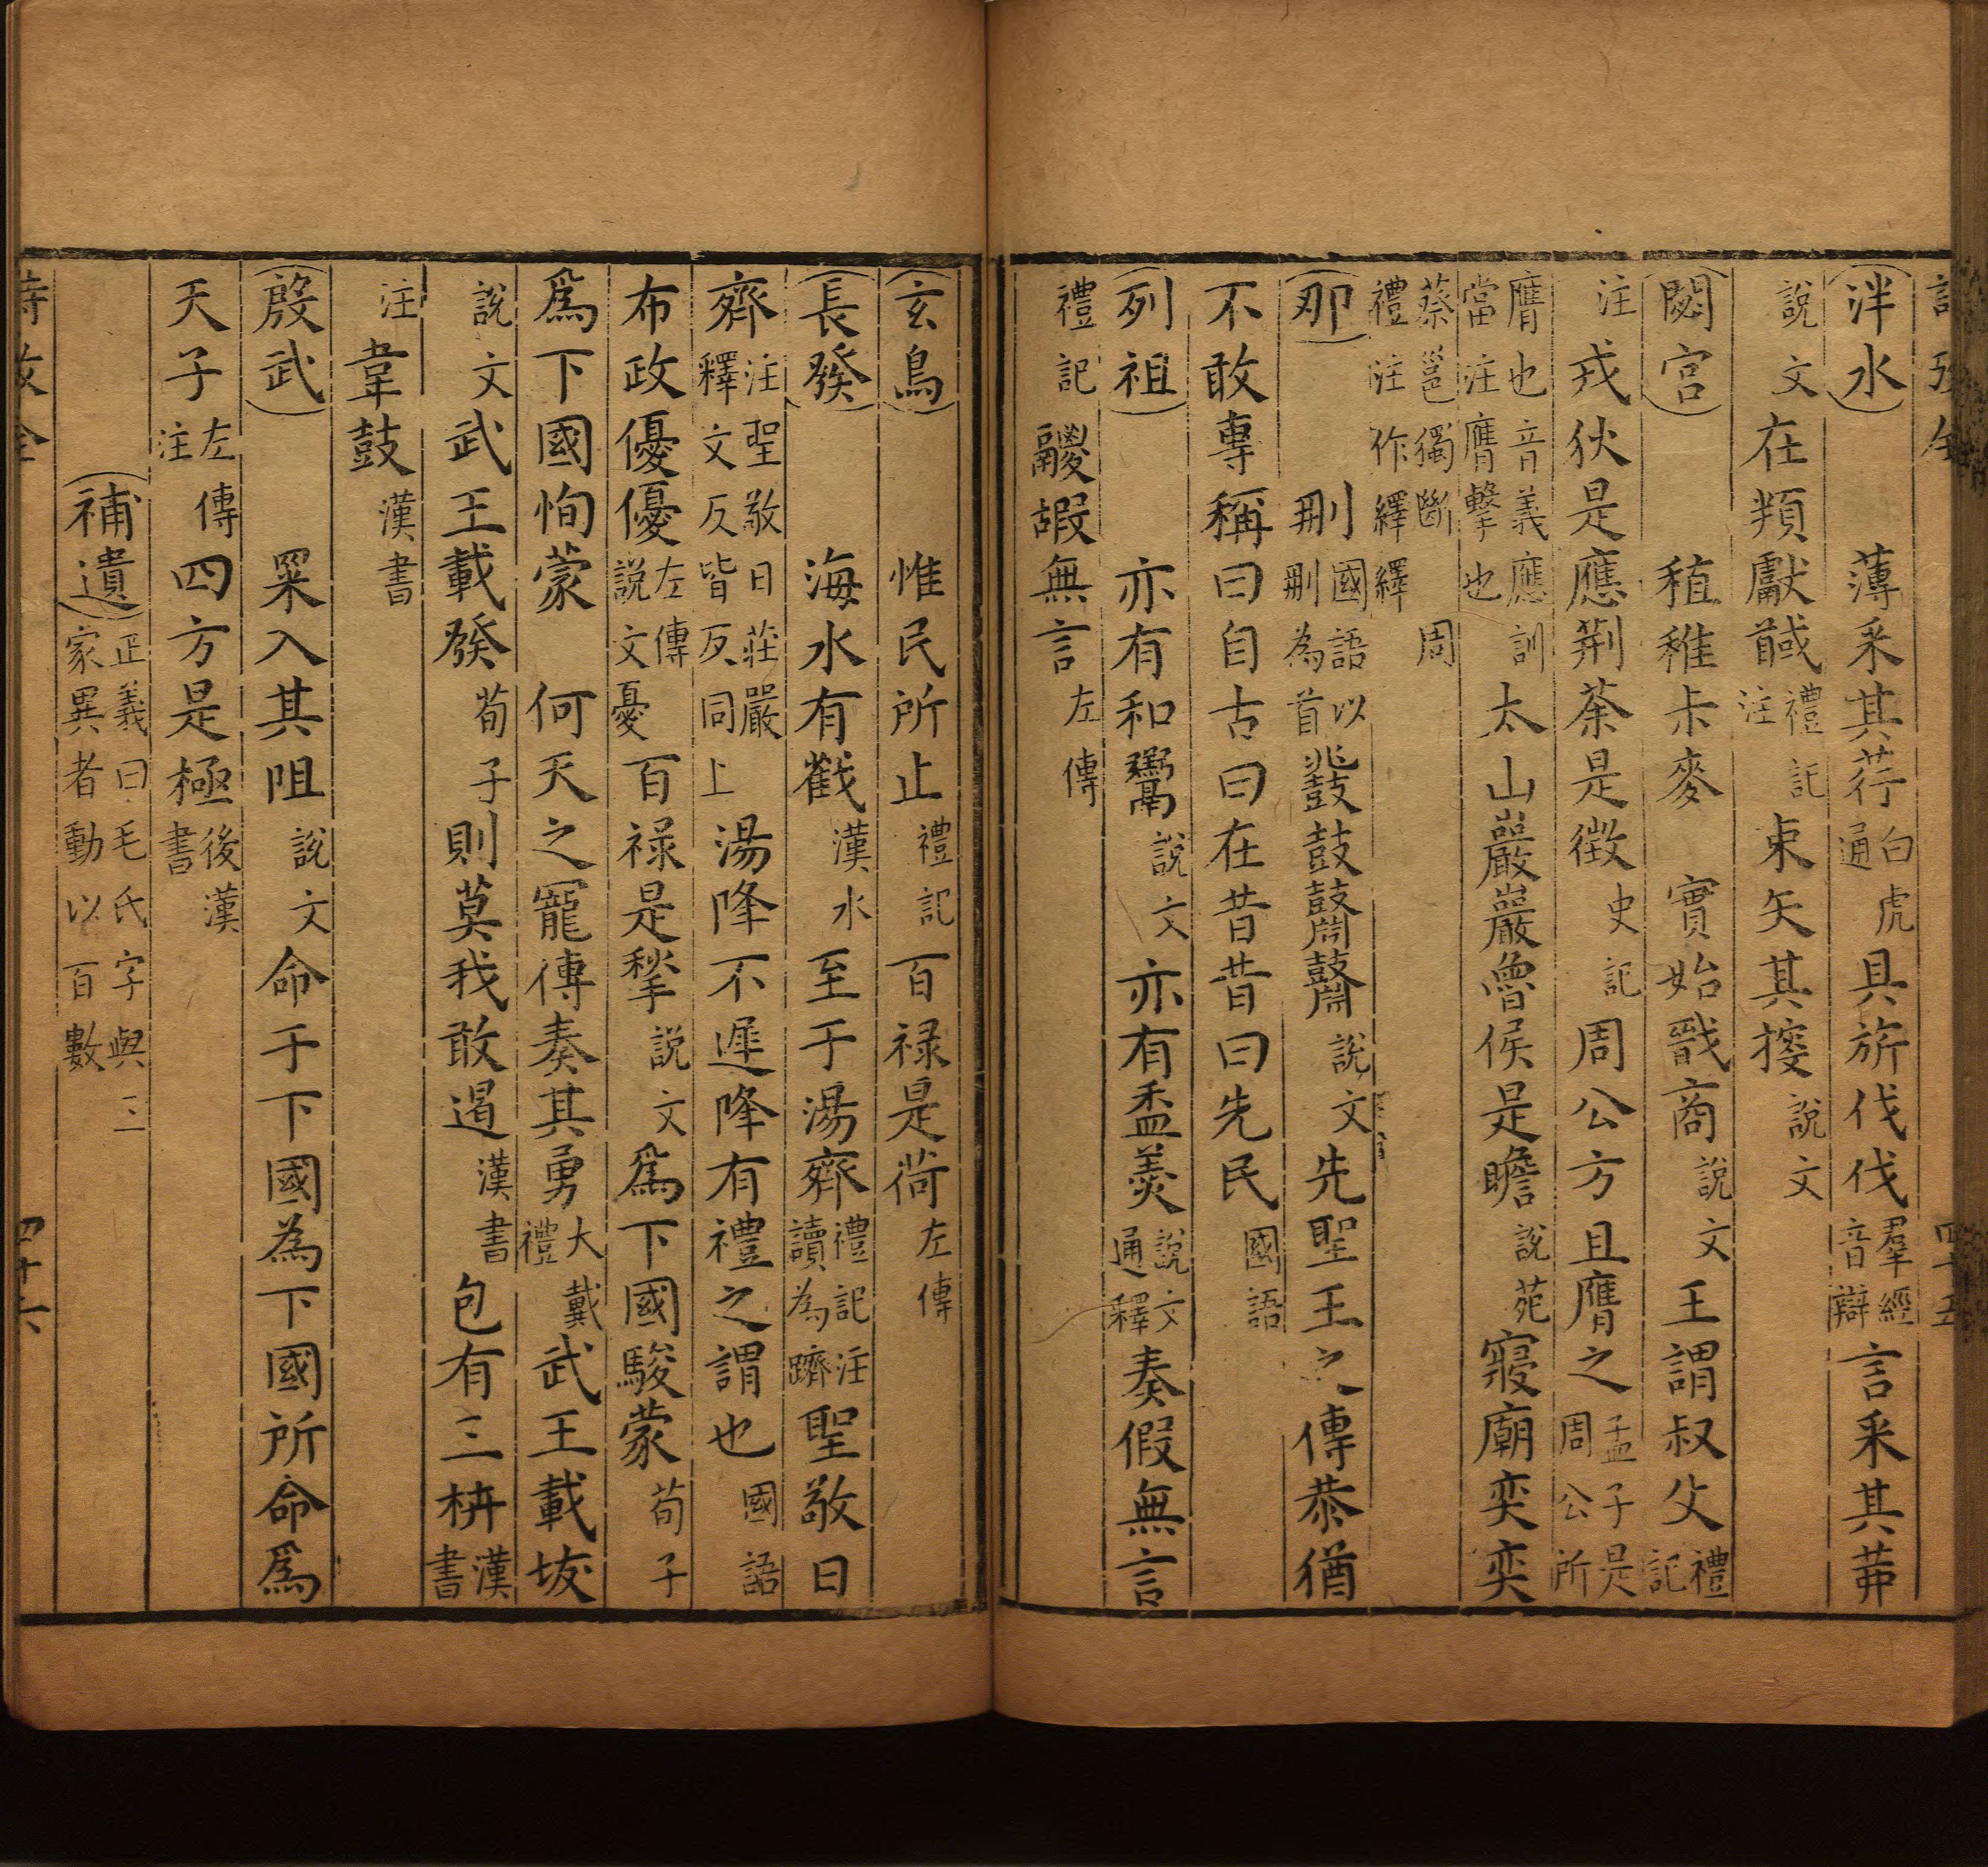 泮水　薄釆其荇白虎通具旂伐伐羣經音辯言釆其茆
說文在頖獻馘禮記注束矢其搜說文
閟宮　稙稚尗麥　實始戩商說文王謂叔父禮記
注戎狄是應荆荼是徴史記周公方且膺之孟子周公所是
膺也音義應訓當注膺擊也太山巖巖魯侯是瞻說苑寢廟奕奕
蔡邕獨斷周禮注作繹繹
那　刪國語以刪為首鼗鼓鼘鼘說文先聖王之傳恭猶
不敢專稱曰自古曰在昔昔曰先民國語
列祖　亦有和鬻說文亦有盉羹說文通釋奏假無言
禮記鬷嘏無言左傳
玄鳥　惟民所止禮記百禄是荷左傳
長發　海水有截漢水至于湯齊禮記注讀為躋聖敬日
齊注聖敬日莊嚴釋文反皆反同上湯降不遲降有禮之謂也國語
布政優優左傳說文憂百禄是揫說文爲下國駿蒙荀子
爲下國恂蒙　何天之寵傅奏其勇大戴禮武王載坺
說文武王載發荀子則莫我敢遏漢書包有三枿漢書
注韋鼓漢書
殷武　冞入其阻說文命于下國為下國所命爲
天子左傳注四方是極後漢書
補遺正義曰毛氏字與三家異者動以百數
四十六